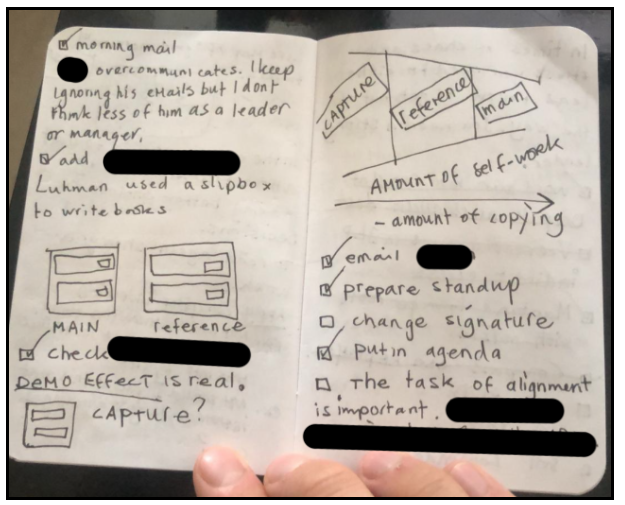 morning mail
overcommunicates. I keep
ignoring his emails but I dont
think less of him as a leader
or manager.
add
Luhman used a slipbox
to write books
MAIN reference
check
DEMO EFFECT is real.
CAPture?
CAPTURE
reference
main
AMOUNT OF self-work
- amount of copying
email
prepare standup
change signature
put in agenda
The task of alignment
is important.